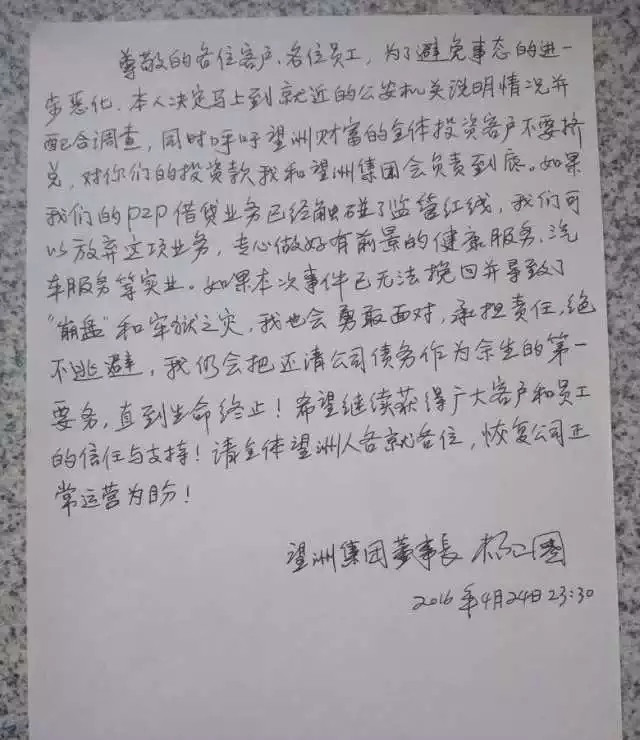 尊敬的各位客户、各位员工，为了避免事态的进一
步恶化，本人决定马上到就近的公安机关说明情况并
配合调查，同时呼吁望洲财富的全体投资客户不要挤
兑，对你们的投资款我和望洲集团会负责到底。如果
我们的P2P借贷业务已经触碰了监管红线，我们可
以放弃这项业务，专心做好有前景的健康服务、洗
车服务等实业。如果本次事件已无法挽回并导致了
“崩盘”和牢狱之灾，我也会勇敢面对，承担责任，绝
不逃避，我仍会把还清公司债务作为余生的第一
要务，直到生命终止！希望继续获得广大客户和员工
的信任与支持！请全体望洲人各就各位，恢复公司正
常运营为盼！
望洲集团董事長 杨卫国
2016年4月24日23:30